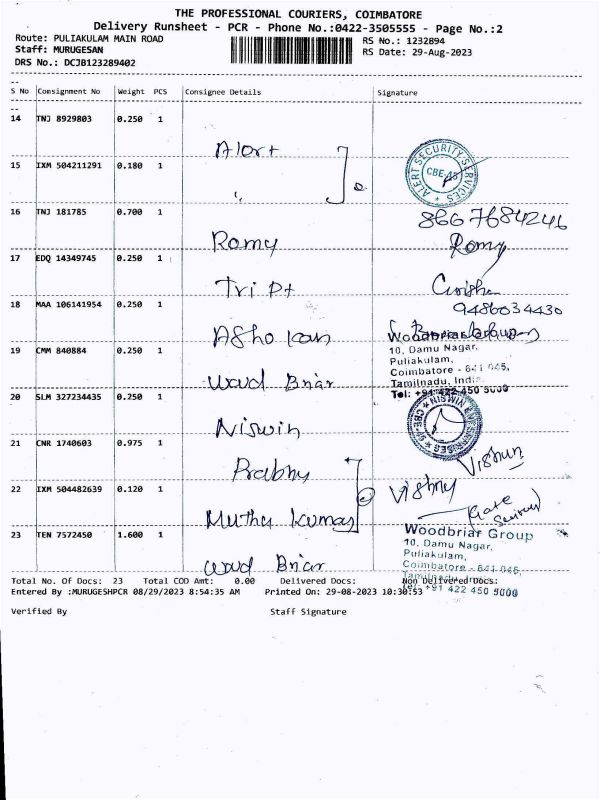 THE PROFESSIONAL COURIERS, COIMBATORE
Delivery Runsheet - PCR - Phone No.:0422-3505555 - Page No.:2
Route: PULIAKULAM MAIN ROAD
RS No.: 1232894
Staff: MURUGESAN
RS Date: 29-Aug-2023
DRS No.: DCJB123289402
S No Consignment No Weight PCS Consignee Details Signature
14 TNJ 8929803 0.250 1
Alert
ALERT SECURITY SERVICES CBE-45
15 IXM 504211291 0.180 1
"
16 TNJ 181785 0.700 1
8667684246
Romy Romy
17 EDQ 14349745 0.250 1
Tri Pt
9486034430
18 MAA 106141954 0.250 1
Asho kan
Woodbriar Group
19 CMM 840884 0.250 1
10, Damu Nagar,
Puliakulam,
Coimbatore - 641 045,
Wood Briar
Tamilnadu, India.
Tel: +91 422 450 5000
20 SLM 327234435 0.250 1
Niswin
21 CNR 1740603 0.975 1
Prabhu
Vishnu
22 IXM 504482639 0.120 1
Vishnu
Muthu Kumar
23 TEN 7572450 1.600 1
Woodbriar Group
10, Damu Nagar,
Puliakulam,
Wood Briar
Coimbatore - 641 045,
Total No. Of Docs: 23 Total COD Amt: 0.00 Delivered Docs: Non Delivered Docs:
Tel: +91 422 450 5000
Entered By :MURUGESHPCR 08/29/2023 8:54:35 AM Printed On: 29-08-2023 10:30:53
Verified By Staff Signature